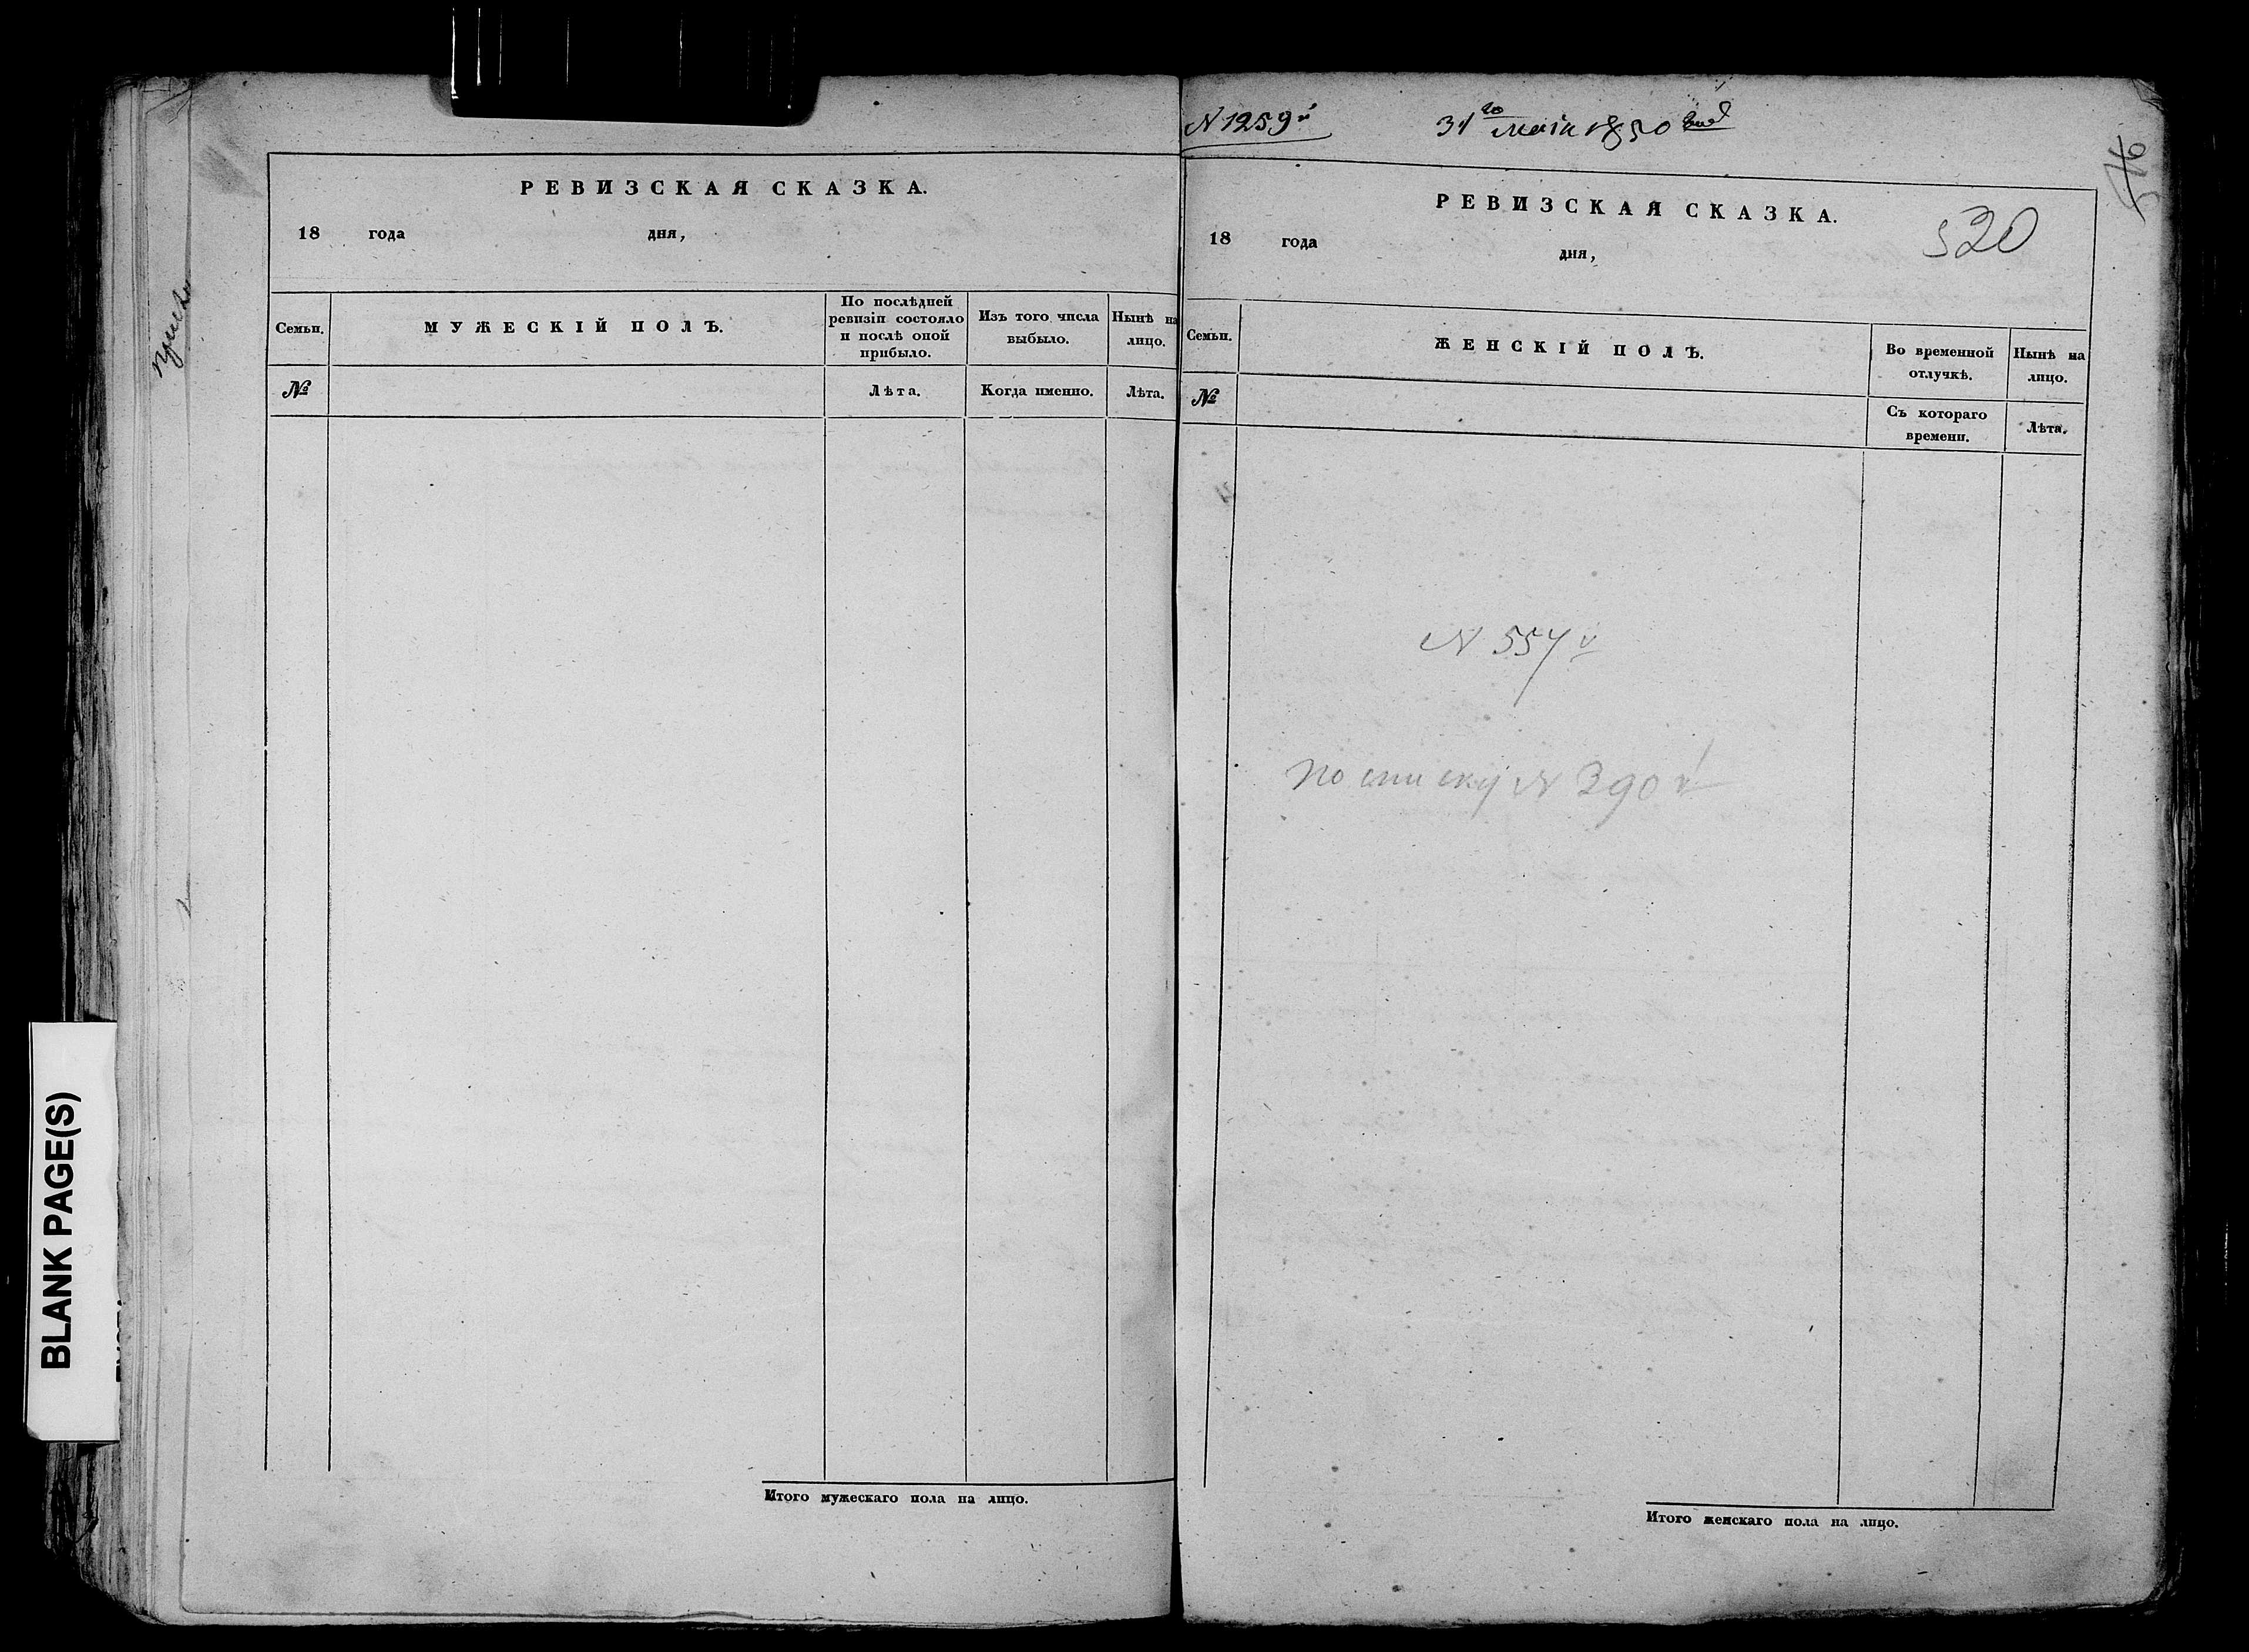 РЕВИЗСКАЯ СКАЗКА.
18 года дня,
Семьи.
МУЖЕСКІЙ ПОЛЪ.
По послѣдней
ревизіи состояло
и послѣ оной
прибыло.
Изъ того числа
выбыло.
Нынѣ на
лицо.
№
Лѣта.
Когда именно.
Лѣта.
Итого мужескаго пола на лицо.
BLANK PAGE(S)
N 1259й
31го мaiя 1850 года
РЕВИЗСКАЯ СКАЗКА.
520
18 года
дня,
Семьи.
ЖЕНСКІЙ ПОЛЪ.
Во временной
отлучкѣ.
Нынѣ на
лицо.
№
Съ котораго
времени.
Лѣта.
N 557й
по списку N 390й
Итого женскаго пола на лицо.